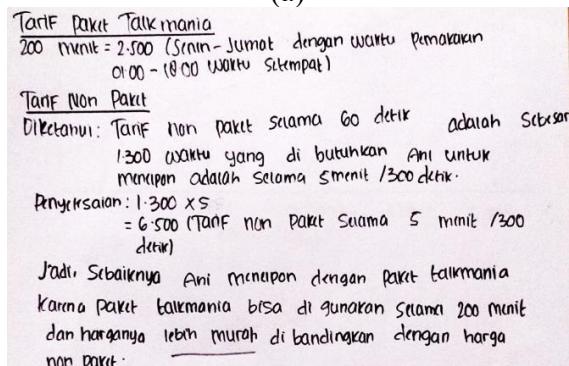 (a)
Tarif paket Talkmania
200 menit = 2.500 (Senin - Jumat dengan waktu pemakaian
01.00 - 18.00 waktu setempat)
Tarif Non Paket
Diketahui : Tarif non paket selama 60 detik adalah sebesar
1.300 waktu yang di butuhkan Ani untuk
menelpon adalah selama 5menit /300 detik.
Penyelesaian : 1.300 x 5
= 6.500 (Tarif non paket selama 5 menit /300
detik)
Jadi, Sebaiknya Ani menelpon dengan paket talkmania
karena paket talkmania bisa di gunakan selama 200 menit
dan harganya lebih murah di bandingkan dengan harga
non paket.